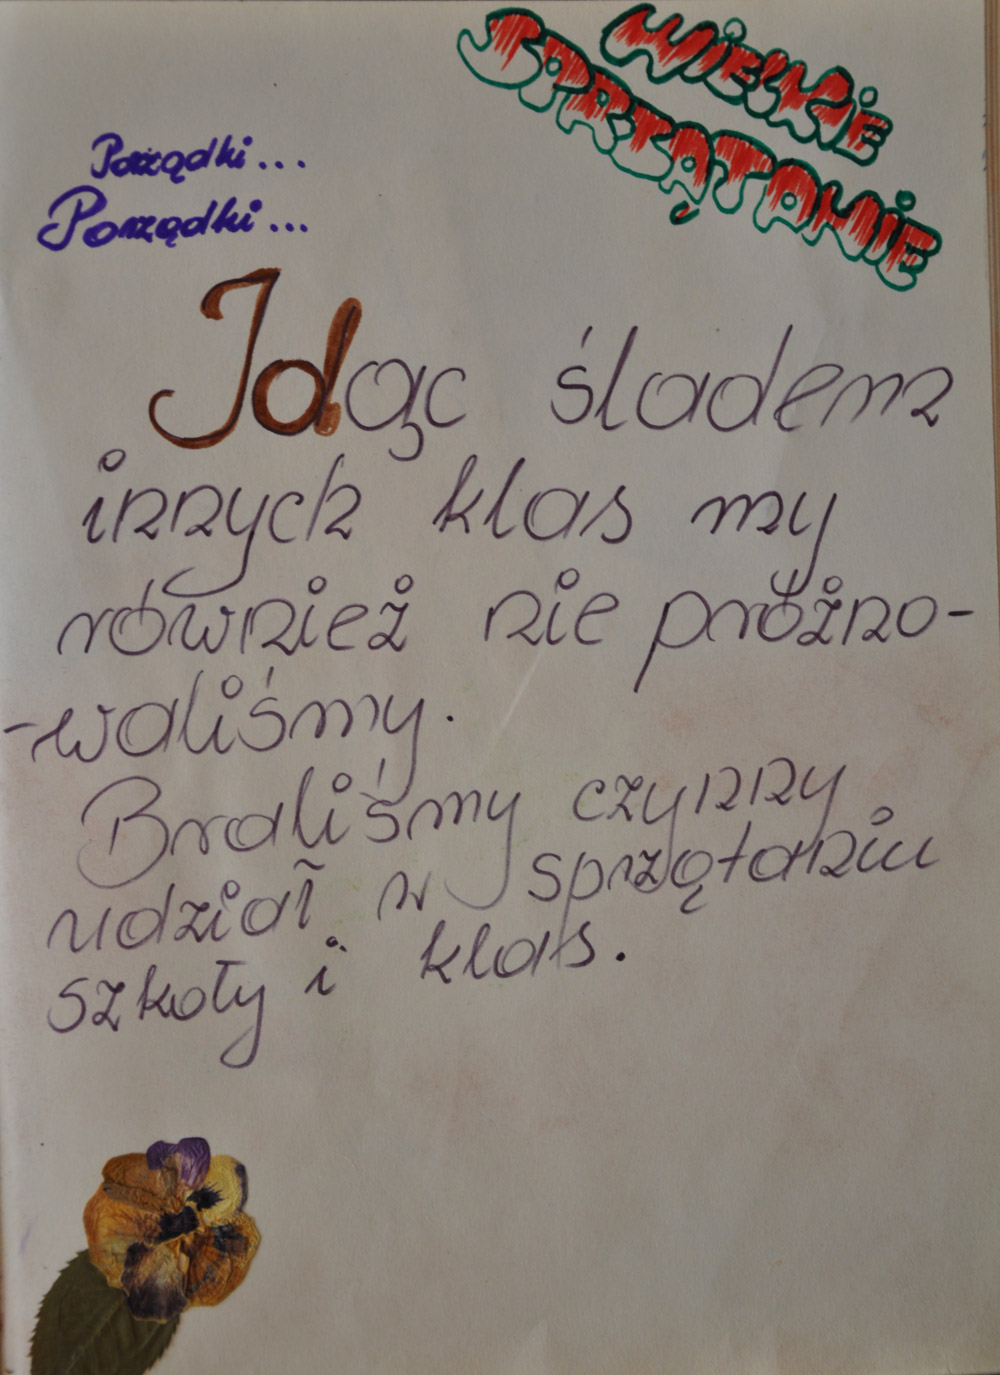 WIELKIE
SPRZĄTANIE
Porządki...
Porządki...
Idąc śladem
innych klas my
również nie próżno-
-waliśmy.
Braliśmy czynny
udział w sprzątaniu
szkoły i klas.